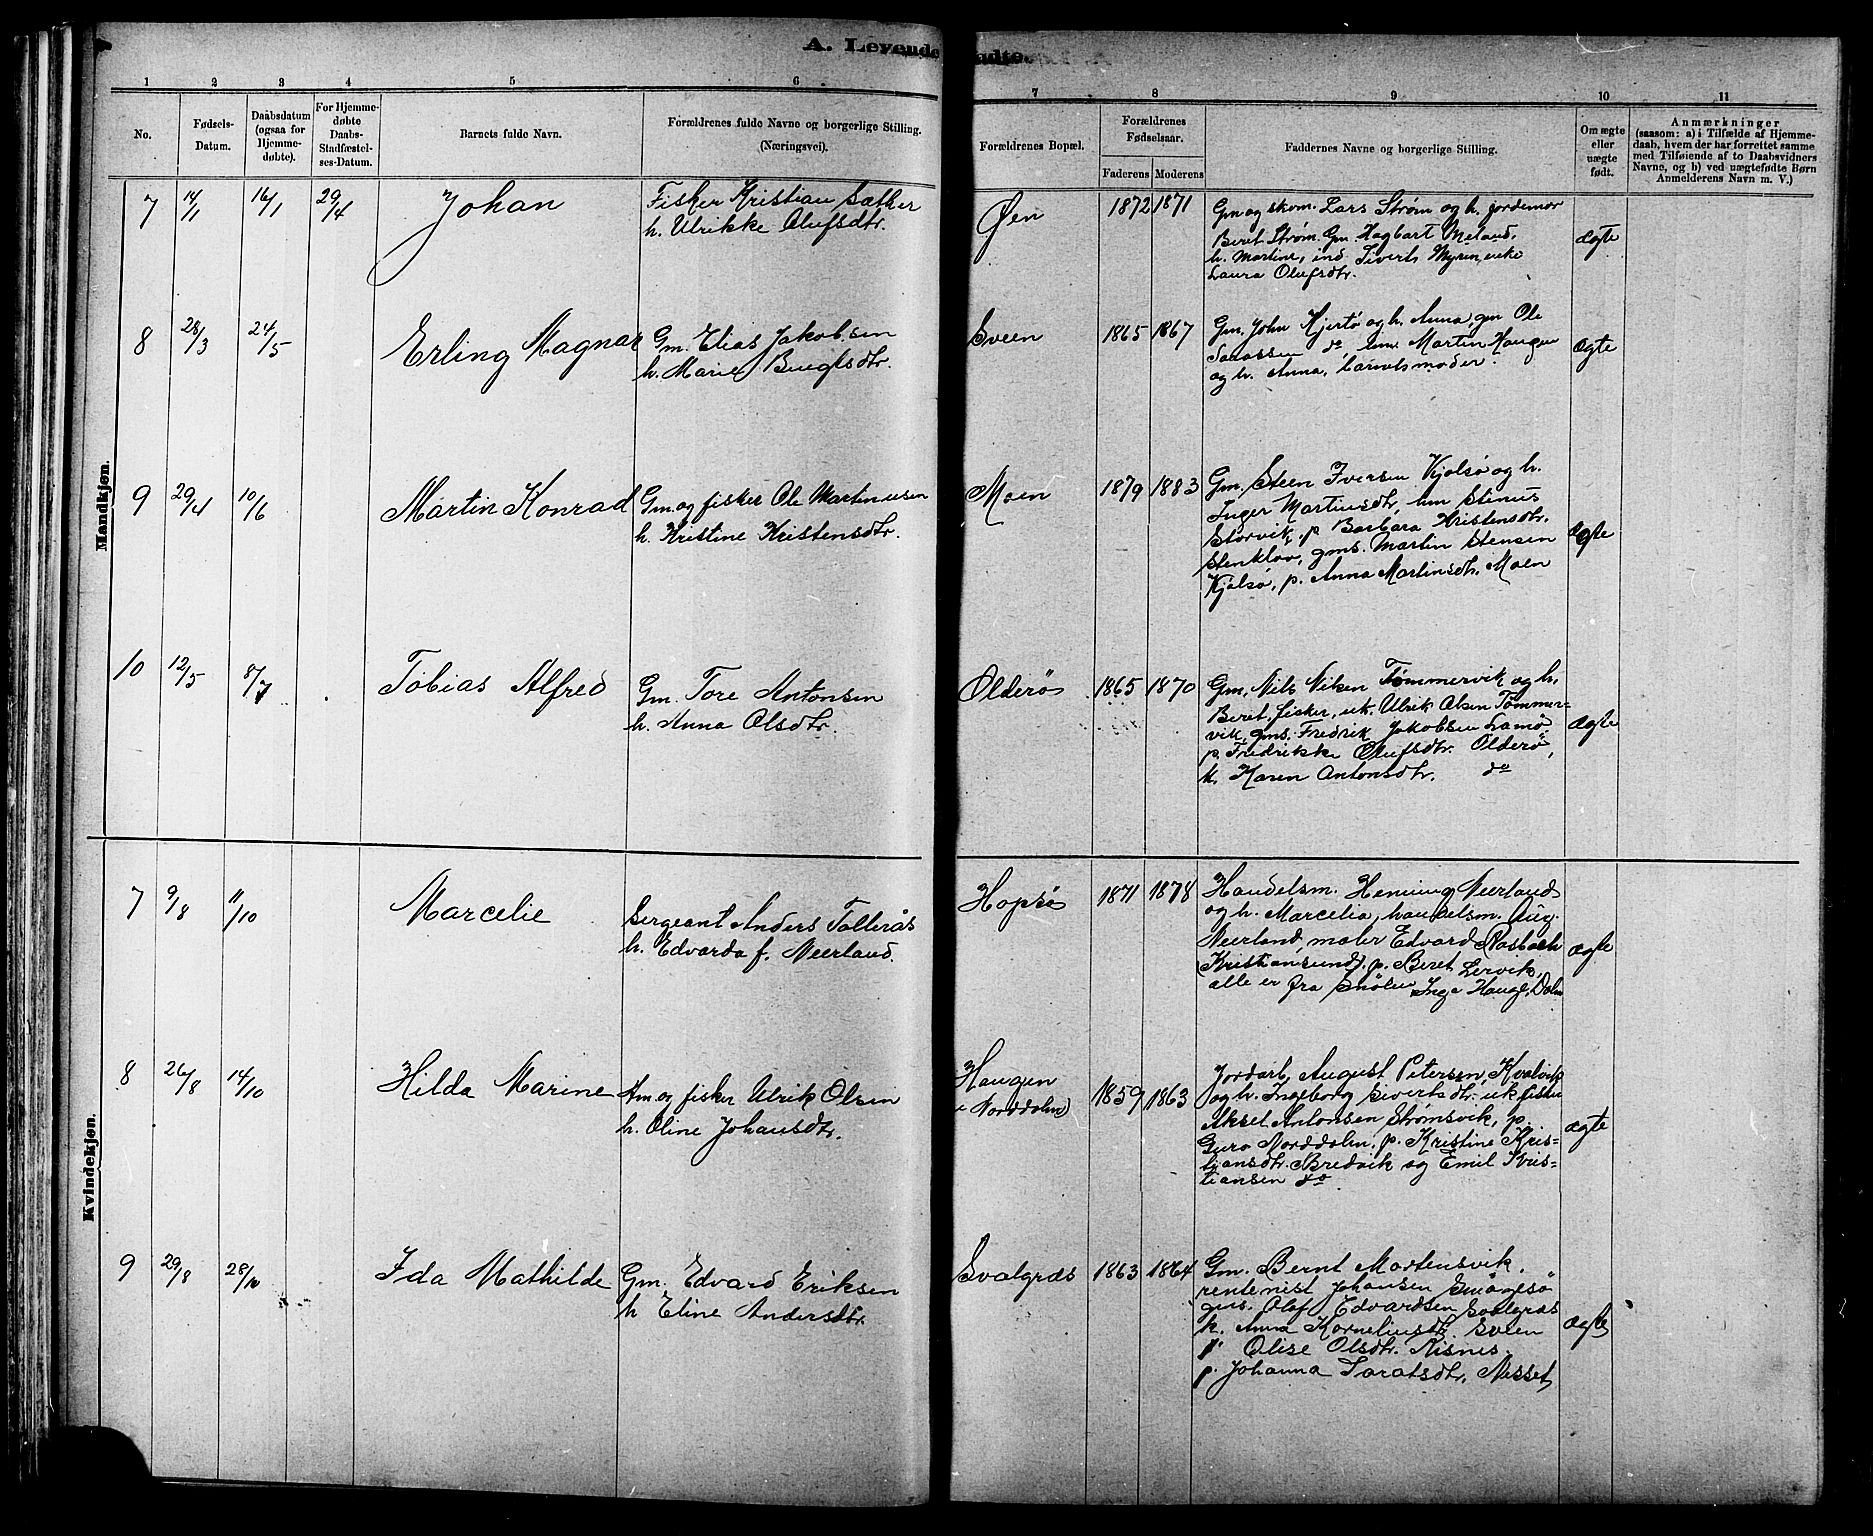 A. Levende
fødte.
1 2 3 4 5 6 7 8 9 10 11
No.
Fødsels-
Datum.
Daabsdatum
(ogsaa for
Hjemme-
døbte).
For Hjemme-
døbte
Daabs-
Stadfæstel-
ses-Datum.
Barnets fulde Navn.
Forældrenes fulde Navne og borgerlige Stilling.
(Næringsvei).
Forældrenes Bopæl.
Forældrenes
Fødselsaar.
Faderens Moderens
Faddernes Navne og borgerlige Stilling.
Om ægte
eller
uægte
født.
Anmærkninger
(saasom: a) i Tilfælde af Hjemme-
daab, hvem der har forrettet samme
med Tilføiende af to Daabsvidners
Navne, og b) ved uægtefødte Børn
Anmelderens Navn m. V.)
Mandkjøn.
7 14/1 16/1 29/4 Johan
Fisker Kristian Sæther
h. Ulrikke Olufsdtr.
Øen 1872 1871
Gm og skom. Lars Strøm og h. jordemor
Beret Strøm. Gm. Hagbart Meland,
h. Martine, ind. Siverts Myren, enke
Laura Olufsdtr.
ægte
8 28/3 24/5 Erling Magnar
Gm. Elias Jakobsen
h. Marie Bengtsdtr.
Sveen 1865 1867
Gm. John Hjertø og h. Anna, gm Ole
do Martin Haugen
og h. Anna, barnets moder.
ægte
9 29/4 10/6 Martin Konrad
Gm og fisker Ole Martinusen
h. Kristine Kristensdtr.
Moen 1879 1883
Gm. Steen Iversen Kjølsø og h.
Inger Martinsdtr, Stenus
Storvik, p. Barbara Kristensdtr.
Stenkløv, gms. Martin Stensen
Kjølsø, p. Anna Martinsdtr. Moen
ægte
10 12/5 8/7 Tobias Alfred
Gm. Tore Antonsen
h. Anna Olsdtr.
Olderø 1865 1870
Gm. Nils Nilsen Tømmervik og h.
Beret, fisker, uk. Ulrik Olsen Tømmer-
vik, gms. Fredrik Jakobsen Lamø
p. Fredrikke Olufsdtr. Olderø,
k. Karen Antonsdtr. do
ægte
Kvindekjøn.
7 9/8 11/10 Marcelie
Sergeant Anders Tallerås
h. Edvarda f. Neerland.
Hopsø 1871 1878
Handelsm. Henning Neerland
og h. Marcelia, handelsm. Aug.
Neerland, maler Edvard Rosbach
(Kristiansund). p. Beret Lervik,
alle er fra Smølen Inga Haugl, Dolm
ægte
8 26/8 14/10 Hilda Marine
Gm og fisker Ulrik Olsen
h. Oline Johansdtr.
Haugen
i Norddolm) 1859 1863
Jordarb. August Petersen, Kvalvik
og h. Ingeborg Sivertsdtr. uk fisker
Aksel Antonsen Strømsvik, p.
Guro Norddolm, p. Kristine Kris-
tiansdtr. Bredvik og Emil Kris-
tiansen do
ægte
9 29/8 28/10 Ida Mathilde
Gm. Edvard Eriksen
h Eline Andersdtr.
Svalgræs 1863 1864
Gm. Bernt Mortensvik.
rentenist Johansen Smågesø
gms. Olaf Edvardsen Svalgræs
k. Anna Korneliusdtr. Sveen
p. Olise Olsdtr. Risnes.
p. Johanna Taraldsdtr. Nesset
ægte